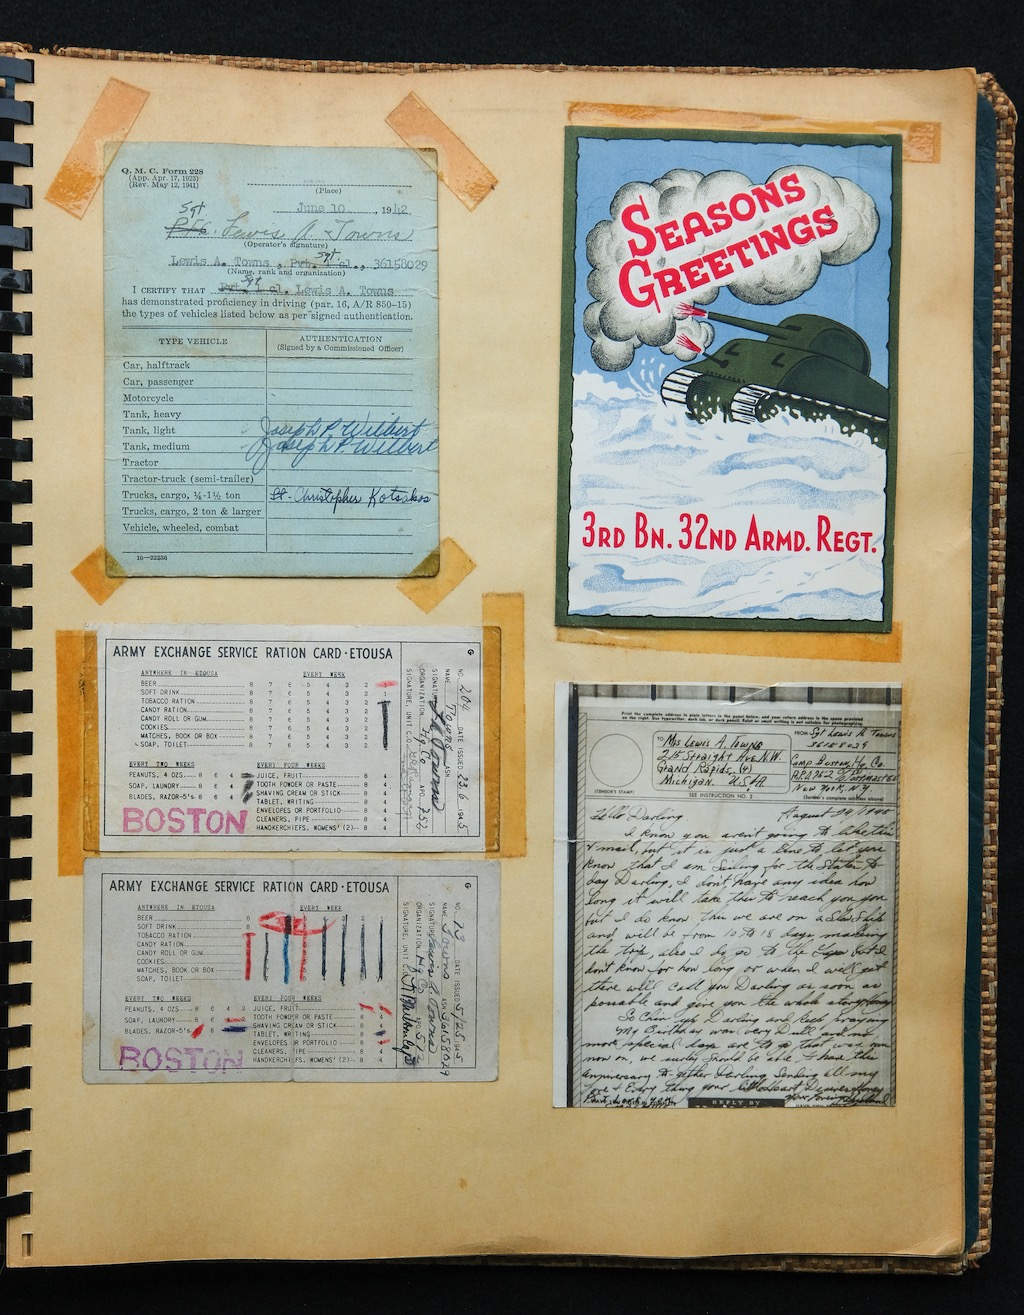 Q. M. C. Form 228
(App. Apr. 17, 1923)
(Rev. May 12, 1941)
(Place)
June 10 , 1942
Sgt
Pfc. Lewis A. Towns
(Operator's signature)
Sgt
Lewis A. Towns , Pvt. 1 cl., 36158029
(Name, rank and organization)
Sgt
I CERTIFY THAT Pvt. 1 cl. Lewis A. Towns
has demonstrated proficiency in driving (par. 16, A/R 850-15)
the types of vehicles listed below as per signed authentication.
TYPE VEHICLE AUTHENTICATION
(Signed by a Commissioned Officer)
Car, halftrack
Car, passenger
Motorcycle
Tank, heavy
Tank, light Joseph P. Wilbert
Tank, medium Joseph P. Wilbert
Tractor
Tractor-truck (semi-trailer)
Trucks, cargo, ¼-1½ ton Lt. Christopher Kotsakos
Trucks, cargo, 2 ton & larger
Vehicle, wheeled, combat
16-22236
SEASONS
GREETINGS
3RD BN. 32ND ARMD. REGT.
ARMY EXCHANGE SERVICE RATION CARD·ETOUSA
ANYWHERE IN ETOUSA EVERY WEEK
BEER 8 7 6 5 4 3 2
SOFT DRINK 8 7 6 5 4 3 2
TOBACCO RATION 8 7 6 5 4 3 2
CANDY RATION 8 7 6 5 4 3 2
CANDY ROLL OR GUM 8 7 6 5 4 3 2
COOKIES 8 7 6 5 4 3 2
MATCHES, BOOK OR BOX 8 7 6 5 4 3 2
SOAP, TOILET 8 7 6 5 4 3 2
EVERY TWO WEEKS EVERY FOUR WEEKS
PEANUTS, 4 OZS. 8 6 4 JUICE, FRUIT 8 4
SOAP, LAUNDRY 8 6 4 TOOTH POWDER OR PASTE 8 4
BLADES, RAZOR-5's 8 6 4 SHAVING CREAM OR STICK 8 4
TABLET, WRITING 8 4
ENVELOPES OR PORTFOLIO 8 4
CLEANERS, PIPE 8 4
HANDKERCHIEFS, WOMENS' (2) 8 4
BOSTON
G
NO. 204 DATE ISSUED 23.6.1945
NAME Towns ASN
SIGNATURE L A Towns
ORGANIZATION Hq Co APO 252
SIGNATURE, UNIT C.O.
ARMY EXCHANGE SERVICE RATION CARD·ETOUSA
ANYWHERE IN ETOUSA EVERY WEEK
BEER
SOFT DRINK
TOBACCO RATION
CANDY RATION
CANDY ROLL OR GUM
COOKIES
MATCHES, BOOK OR BOX
SOAP, TOILET
EVERY TWO WEEKS EVERY FOUR WEEKS
PEANUTS, 4 OZS. 8 6 4 2 JUICE, FRUIT
SOAP, LAUNDRY TOOTH POWDER OR PASTE
BLADES, RAZOR-5's SHAVING CREAM OR STICK
TABLET, WRITING
ENVELOPES OR PORTFOLIO
CLEANERS, PIPE 8 4
HANDKERCHIEFS, WOMENS' (2) 8 4
BOSTON
G
NO. 23 DATE ISSUED 5/25 1945
NAME Towns ASN 36158029
SIGNATURE Lewis A Towns
ORGANIZATION Hq Co APO
SIGNATURE, UNIT C.O.
Print the complete address in plain letters in the panel below, and your return address in the space provided
on the right. Use typewriter, dark ink, or dark pencil. Faint or small writing is not suitable for photographing.
TO Mrs Lewis A. Towns
215 Straight Ave N.W.
Grand Rapids, (4)
Michigan. U.S.A.
FROM Sgt Lewis A Towns
36158029
Hq. Co.
A.P.O. 762 % Postmaster
New York, N.Y.
(CENSOR'S STAMP) SEE INSTRUCTION NO. 2 (Sender's complete address above)
August 24, 1945
Hello Darling
I know you aren't going to like this
V mail, but it is just a line to let you
know that I am Sailing for the States to-
day Darling, I don't have any idea how
long it will take this to reach you
but I do know this we are on a Slow Ship
and will be from 10 to 18 days making
the trip, also I do go to the but I
don't know for how long or when I will get
there will call you Darling as soon as
possable and give you the whole story
So Chin up Darling and Keep praying
My Birthday was very Dull and no
more special days are to go that way from
now on, we surley should be able to have this
anniversary to-gether Darling Sending all my
Love & Every thing your little Heart Desires Honey
Your Loving Husband
REPLY BY